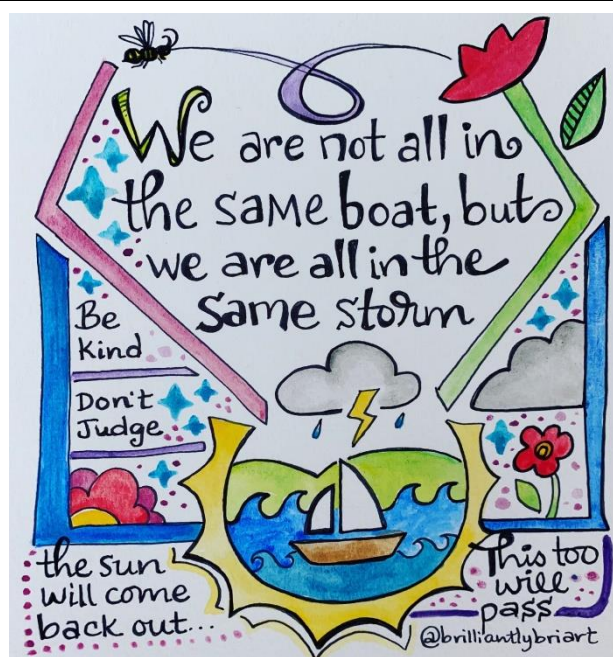 We are not all in
the same boat, but
we are all in the
same storm
Be
Kind
Don't
Judge
the sun
will come
back out...
This too
will
pass
@brilliantlybriart